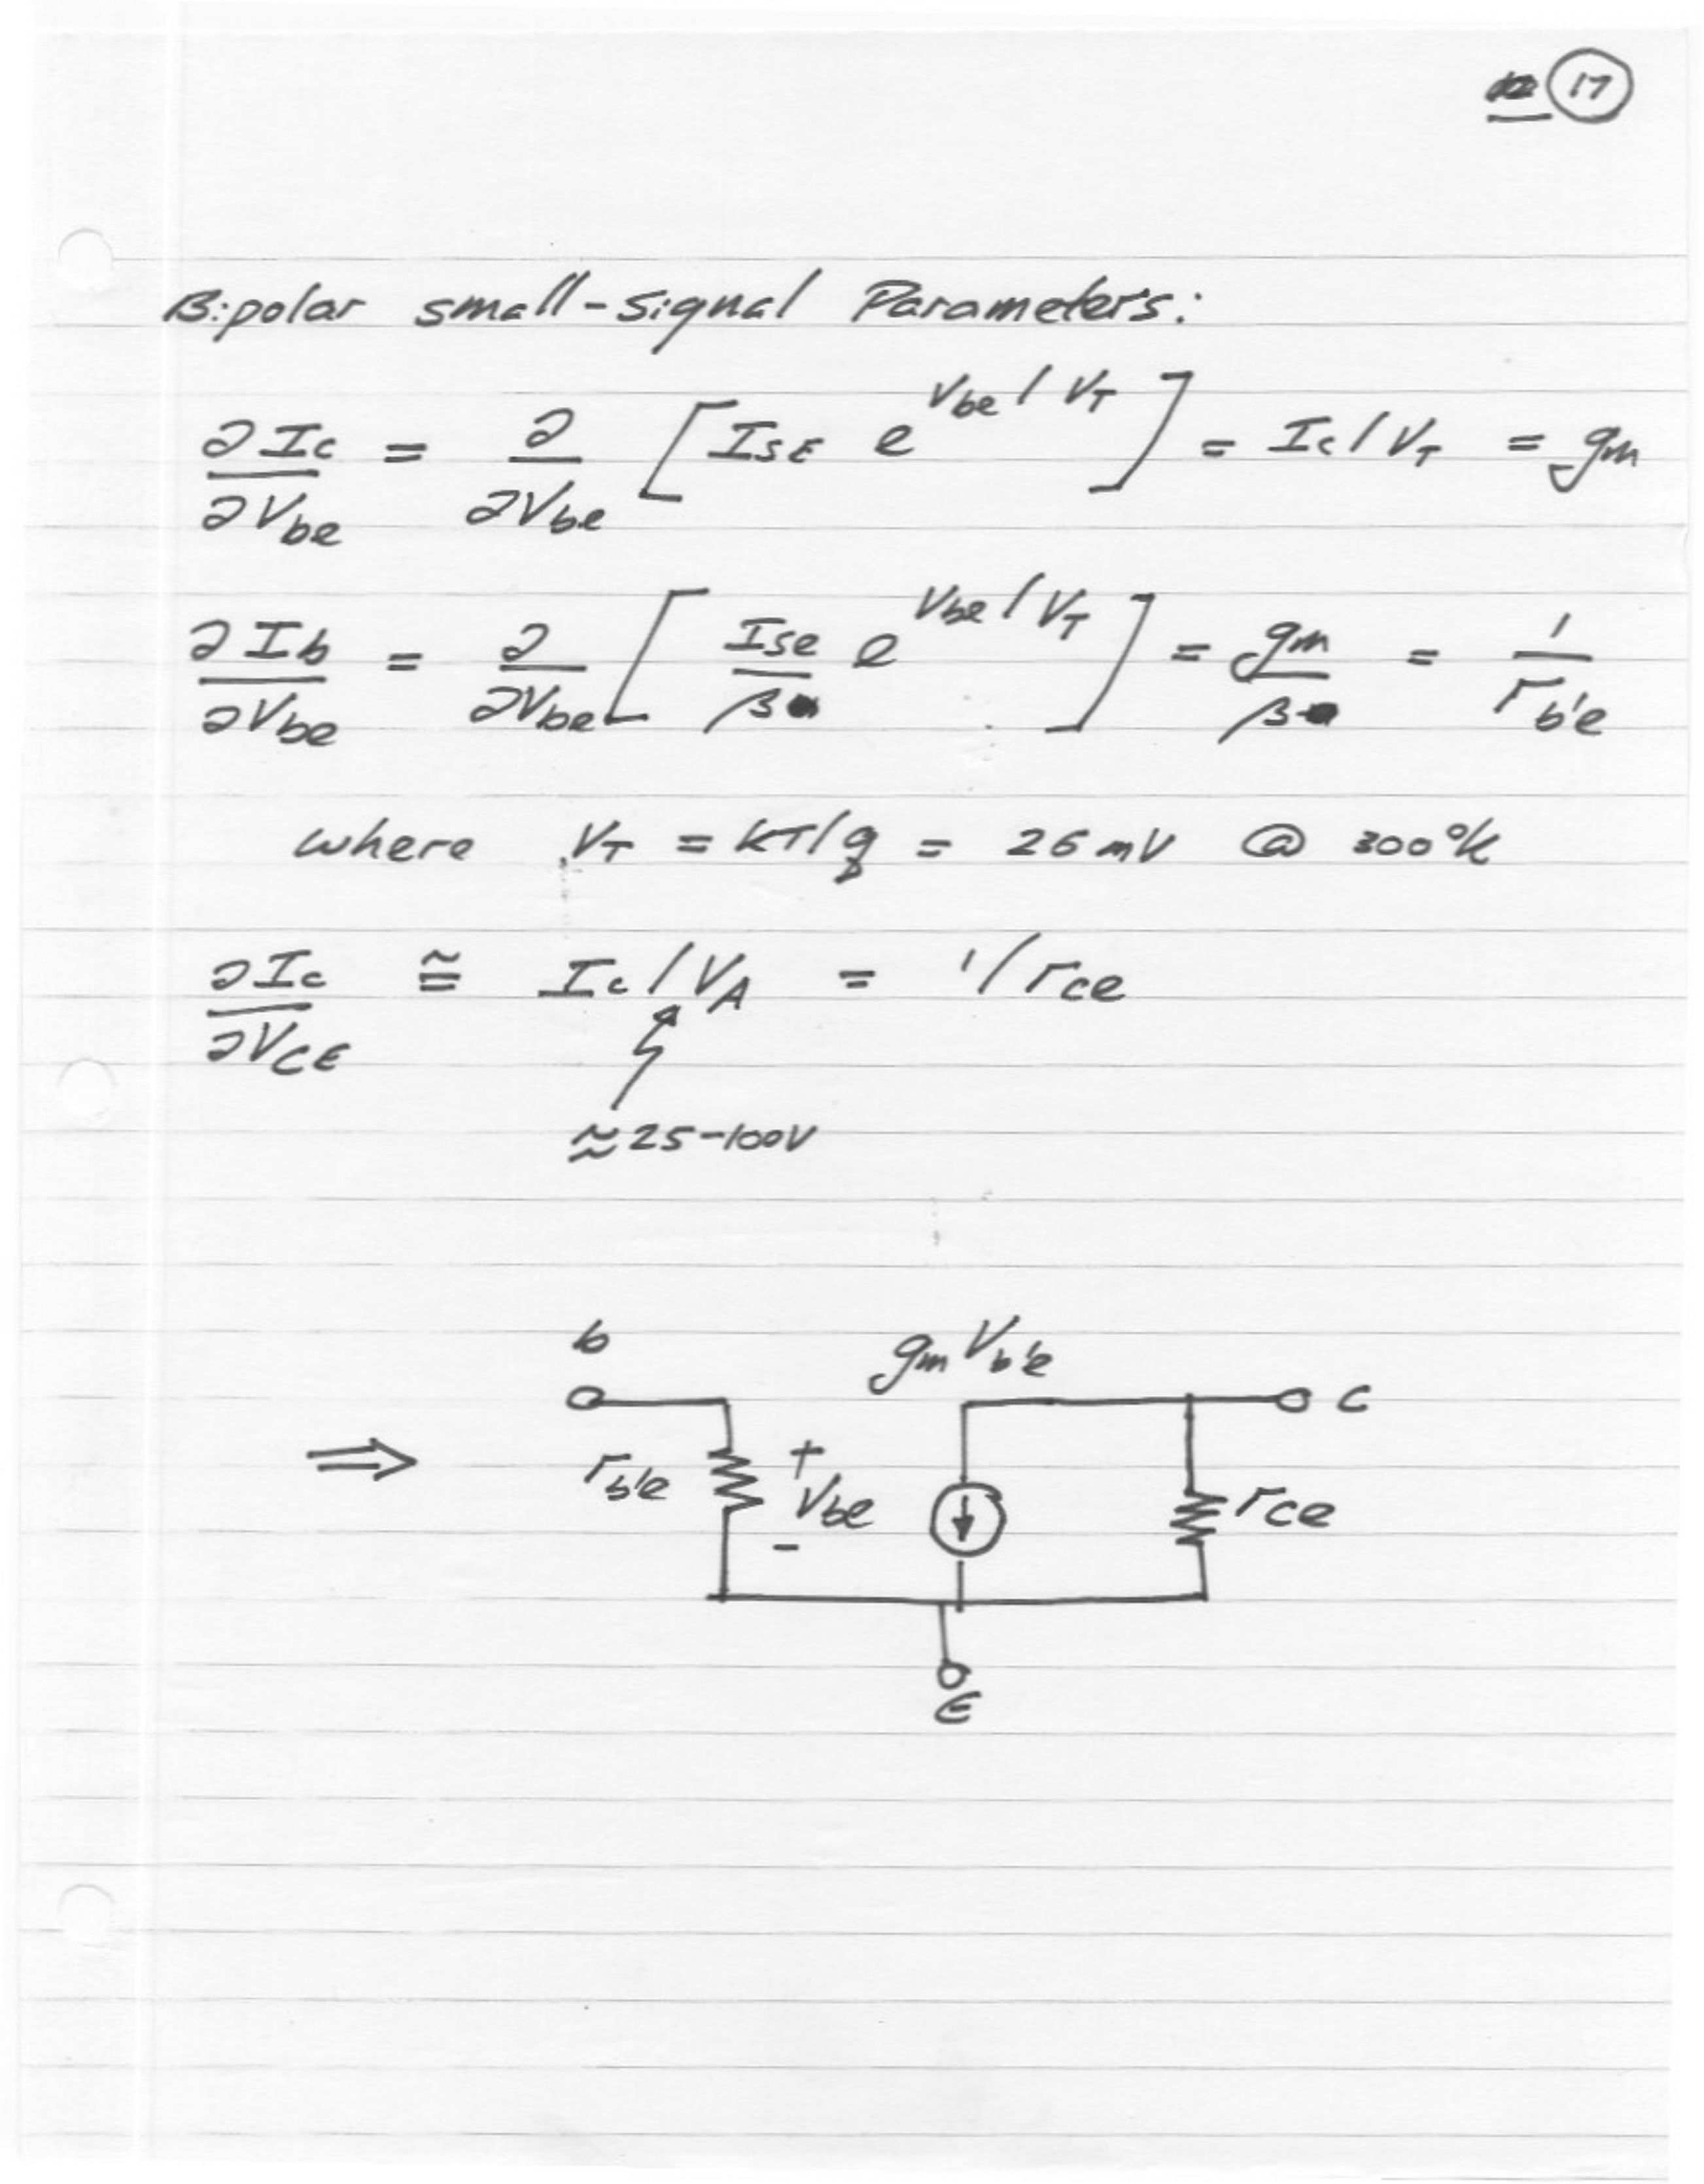 17
Bipolar small-signal Parameters:
∂Ic/∂Vbe = ∂/∂Vbe [ISE e^(Vbe/VT)] = Ic/VT = gm
∂Ib/∂Vbe = ∂/∂Vbe [Ise/β e^(Vbe/VT)] = gm/β = 1/rb'e
where VT = kT/q = 26 mV @ 300°k
∂Ic/∂VCE ≅ Ic/VA = 1/rce
≈25-100V
b gm Vb'e
⇒ rb'e + Vbe - rce C
E